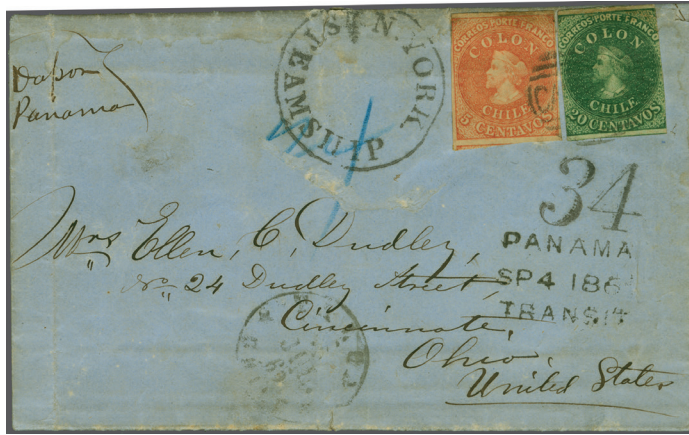 Vapor
Panama
N. YORK
STEAMSHIP
CORREOS PORTE FRANCO
COLON
CHILE
5 CENTAVOS
CORREOS PORTE FRANCO
COLON
CHILE
20 CENTAVOS
34
PANAMA
SP4 186
TRANSIT
Mrs Ellen, C, Dudley,
No 24 Dudley Street,
Cincinnate,
Ohio,
United States